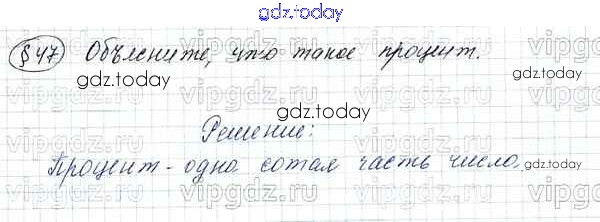 gdz.today
§ 47 Объясните, что такое процент.
gdz.today
gdz.today
gdz.today
Решение:
Процент - одна сотая часть числа.
gdz.today
vipgdz.ru